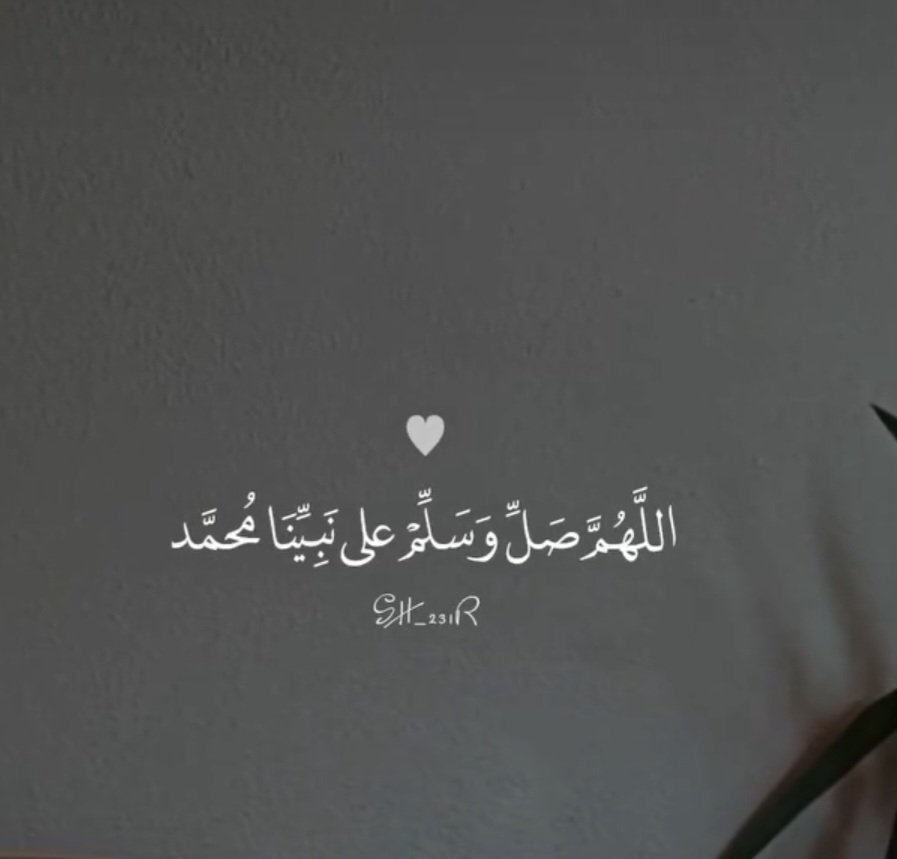 اللَّهُمَّ صَلِّ وَسَلِّمْ على نَبِيِّنَا مُحمَّد
SH_231R